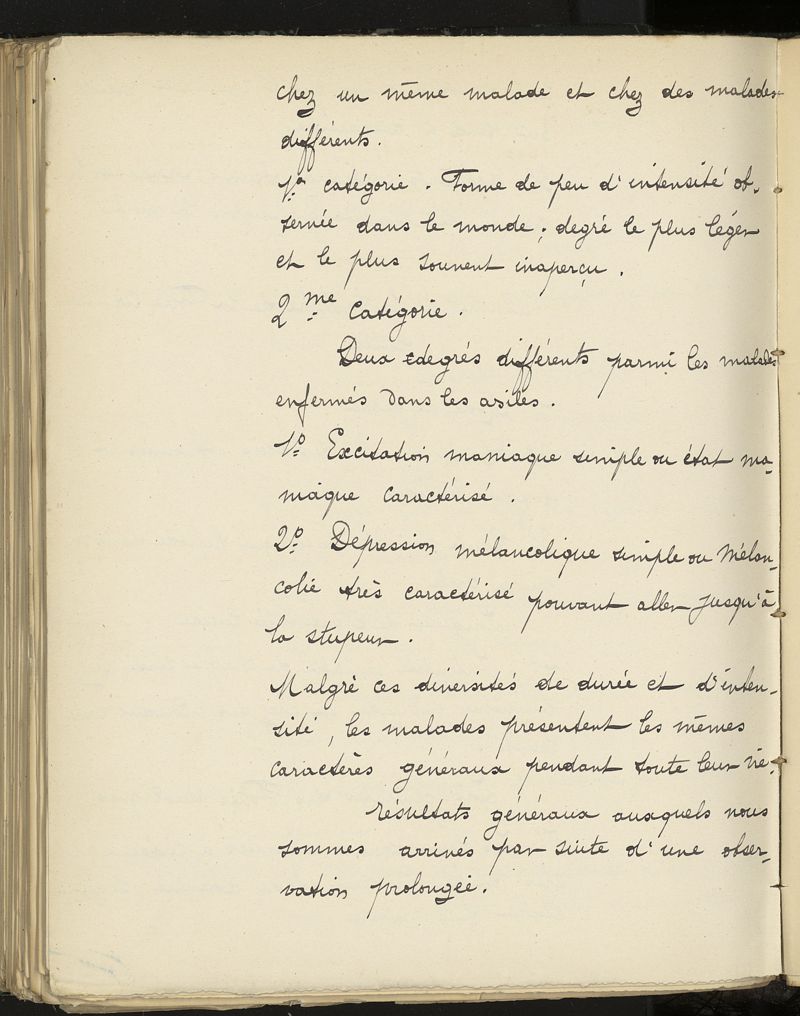 chez un même malade et chez des malades
différents.
1re catégorie. Forme de peu d'intensité ob-
servée dans le monde; degré le plus léger
et le plus souvent inaperçu.
2me Catégorie.
Deux degrés différents parmi les malades
enfermés dans les asiles.
1º Excitation maniaque simple ou état ma-
niaque caractérisé.
2º Dépression mélancolique simple ou Mélan-
colie très caractérisé pouvant aller jusqu'à
la stupeur.
Malgré ces diversités de durée et d'inten-
sité, les malades présentent les mêmes
caractères généraux pendant toute leur vie.
résultats généraux auxquels nous
sommes arrivés par suite d'une obser-
vation prolongée.